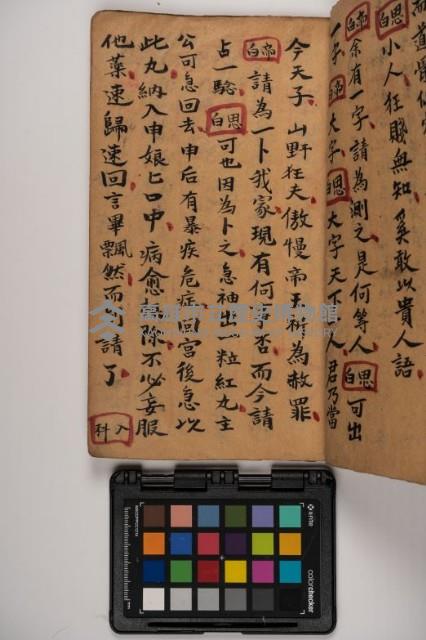 思白小人狂賤無知奚敢以貴人語
帝白余有一字請為測之是何等人思白可出
一字帝白大字思白大字天下人君乃當
今天子山野狂夫傲慢帝王祈為赦罪
帝白請為一卜我家現有何事否而今請
占一驗思白可也因為卜之急袖出一粒紅丸主
公可急回去申后有暴疾危症回宮後急以
此丸納入申娘匕口中病愈頓除不必妄服
他葯速歸速回言畢飄然而請了
入科
高雄市立歷史博物館
x-rite
colorchecker